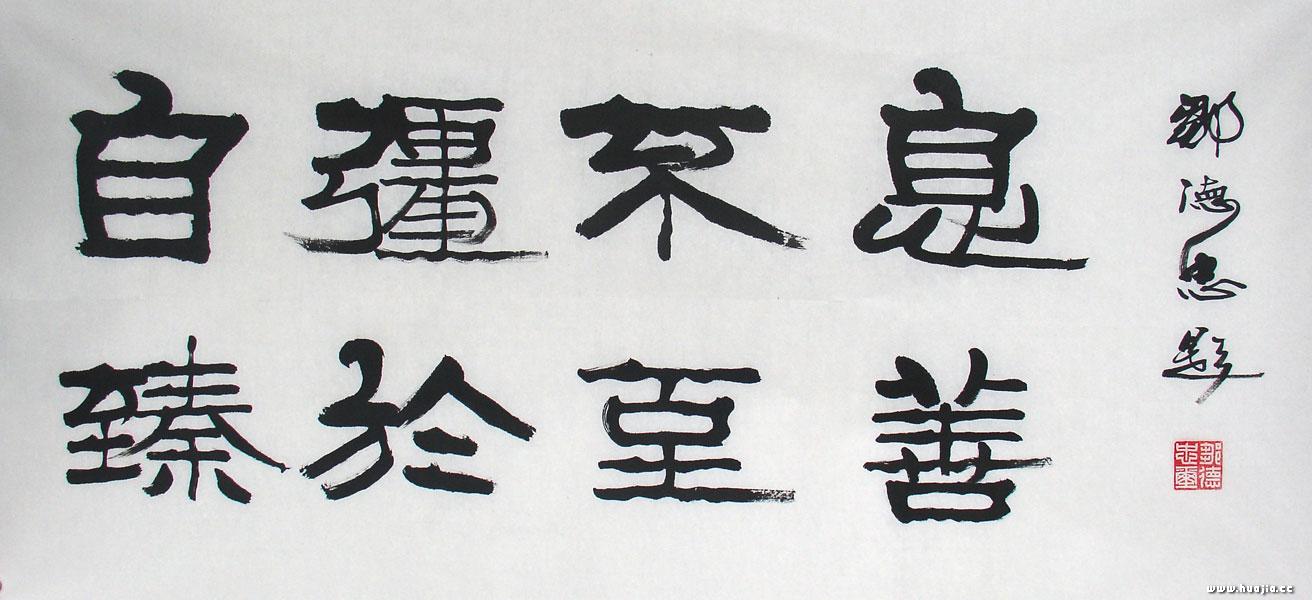 自彊不息
臻於至善
鄒德忠題
鄒德忠璽
www.huajia.cc